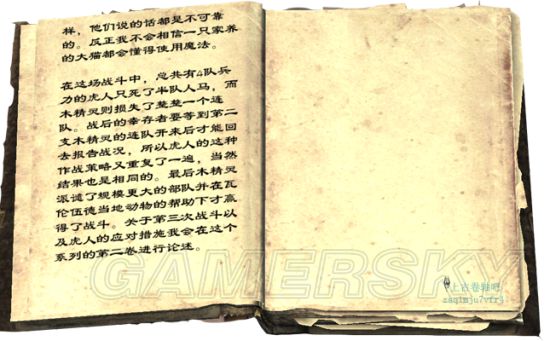 样，他们说的话都是不可靠
的。反正我不会相信一只家养
的大猫都会懂得使用魔法。
在这场战斗中，总共有4队兵
力的虎人只死了半队人马，而
木精灵则损失了整整一个连
队。战后的幸存者要等到第二
支木精灵的连队开来后才能回
去报告战况，所以虎人的这种
作战策略又重复了一遍，当然
结果也是相同的。最后木精灵
派遣了规模更大的部队并在瓦
伦伍德当地动物的帮助下才赢
得了战斗。关于第三次战斗以
及虎人的应对措施我会在这个
系列的第二卷进行论述。
GAMERSKY
上古卷轴吧
zaqimju7vfr4